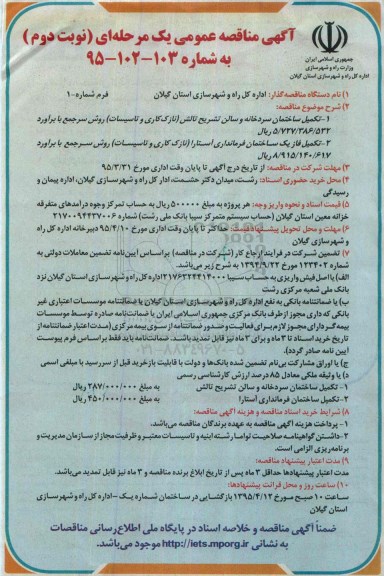 آگهی مناقصه عمومی یک مرحله‌ای (نوبت دوم)
به شماره ۱۰۳-۱۰۲-۹۵
جمهوری اسلامی ایران
وزارت راه و شهرسازی
اداره کل راه و شهرسازی استان گیلان
۱) نام دستگاه مناقصه‌گذار: اداره کل راه و شهرسازی استان گیلان فرم شماره-۱
۲) شرح موضوع مناقصه:
۱- تکمیل ساختمان سردخانه و سالن تشریح تالش (نازک‌کاری و تاسیسات) روش سرجمع با برآورد
۵/۷۲۷/۳۸۶/۵۳۲ ریال
۲- تکمیل فاز یک ساختمان فرمانداری آستارا (نازک کاری و تاسیسات) روش سرجمع با برآورد
۸/۹۱۵/۱۴۰/۶۱۷ ریال
۳) مهلت شرکت در مناقصه: از تاریخ درج آگهی تا پایان وقت اداری مورخ ۹۵/۳/۳۱
۴) محل خرید حضوری اسناد: رشت، میدان دکتر حشمت، اداره کل راه و شهرسازی گیلان، اداره پیمان و
رسیدگی
۵) قیمت اسناد و نحوه واریز وجه: هر پروژه به مبلغ ۵۰۰۰۰۰ ریال به حساب تمرکز وجوه درآمدهای متفرقه
خزانه معین استان گیلان (حساب سیستم متمرکز سیبا بانک ملی رشت) شماره ۲۱۷۰۰۹۴۴۳۷۰۰۶
۶) مهلت و محل تحویل پیشنهاد قیمت: حداکثر تا پایان وقت اداری مورخ ۹۵/۴/۱۰ دبیرخانه اداره کل راه
و شهرسازی گیلان
۷) تضمین شرکت در فرآیند ارجاع کار (شرکت در مناقصه) براساس آیین‌نامه تضمین معاملات دولتی به
شماره ۱۲۳۴۰۲ مورخ ۱۳۹۴/۹/۲۲ به شرح زیر می‌باشد.
الف) با اصل فیش واریزی به حساب سیبا ۲۱۷۶۳۲۴۴۱۴۰۰۰ اداره کل راه و شهرسازی استان گیلان نزد
بانک ملی شعبه مرکزی رشت
ب) یا ضمانتنامه بانکی به نفع اداره کل راه و شهرسازی استان گیلان یا ضمانتنامه موسسات اعتباری غیر
بانکی که دارای مجوز از طرف بانک مرکزی جمهوری اسلامی ایران یا ضمانت‌نامه صادره توسط موسسات
بیمه‌گر دارای مجوز لازم برای فعالیت و صدور ضمانتنامه از سوی بیمه مرکزی (مدت اعتبار ضمانتنامه از
تاریخ خرید اسناد تا ۳ ماه و برای ۳ ماه نیز قابل تمدید باشد. ضمانت‌نامه باید فقط براساس فرم پیوست
آیین نامه صادر گردد).
ج) یا اوراق مشارکت بی‌نام تضمین شده بانک‌ها و دولت با قابلیت بازخرید قبل از سررسید با مبلغی اسمی
د) یا وثیقه ملکی معادل ۸۵ درصد ارزش کارشناسی رسمی
۱- تکمیل ساختمان سردخانه و سالن تشریح تالش به مبلغ ۲۸۷/۰۰۰/۰۰۰ ریال
۲- تکمیل ساختمان فرمانداری آستارا به مبلغ ۴۵۰/۰۰۰/۰۰۰ ریال
۸) شرایط خرید اسناد مناقصه و هزینه آگهی مناقصه:
۱- پرداخت هزینه آگهی مناقصه به عهده برندگان مناقصه می‌باشد.
۲- داشتن گواهینامه صلاحیت توأمار رشته ابنیه و تاسیسات معتبر و ظرفیت مجاز از سازمان مدیریت و
برنامه‌ریزی الزامی است.
۹) مدت اعتبار پیشنهاد مناقصه:
مدت اعتبار پیشنهادها حداقل ۳ ماه پس از تاریخ ابلاغ برنده مناقصه و ۳ ماه نیز قابل تمدید می‌باشد.
۱۰) ساعت روز و محل قرائت پیشنهادها:
ساعت ۱۰ صبح مورخ ۱۳۹۵/۴/۱۲ بازگشایی در ساختمان شماره یک - اداره کل راه و شهرسازی
استان گیلان
ضمناً آگهی مناقصه و خلاصه اسناد در پایگاه ملی اطلاع‌رسانی مناقصات
به نشانی http://iets.mporg.ir موجود می‌باشد.